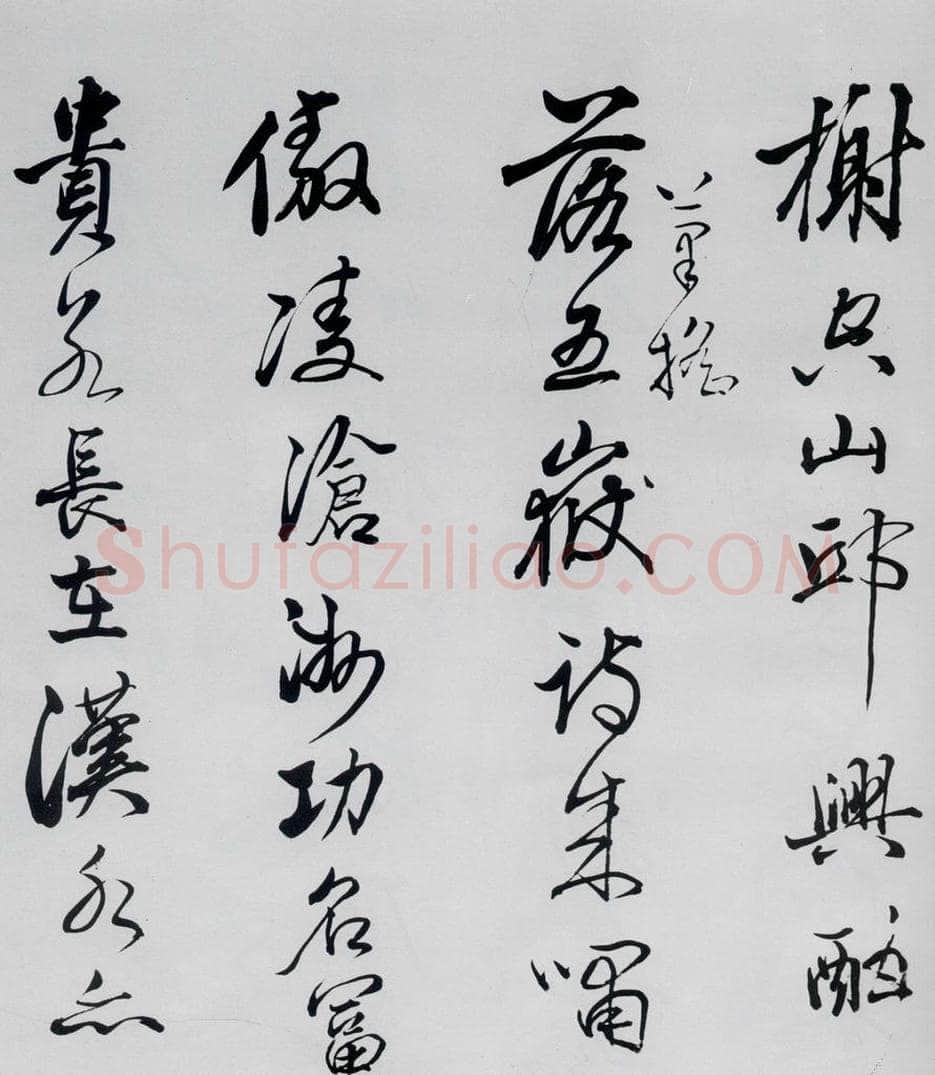 榭空山邱興酣
筆搖
落五嶽詩成嘯
傲凌滄洲功名富
貴若長在漢水亦
Shufaziliao.COM